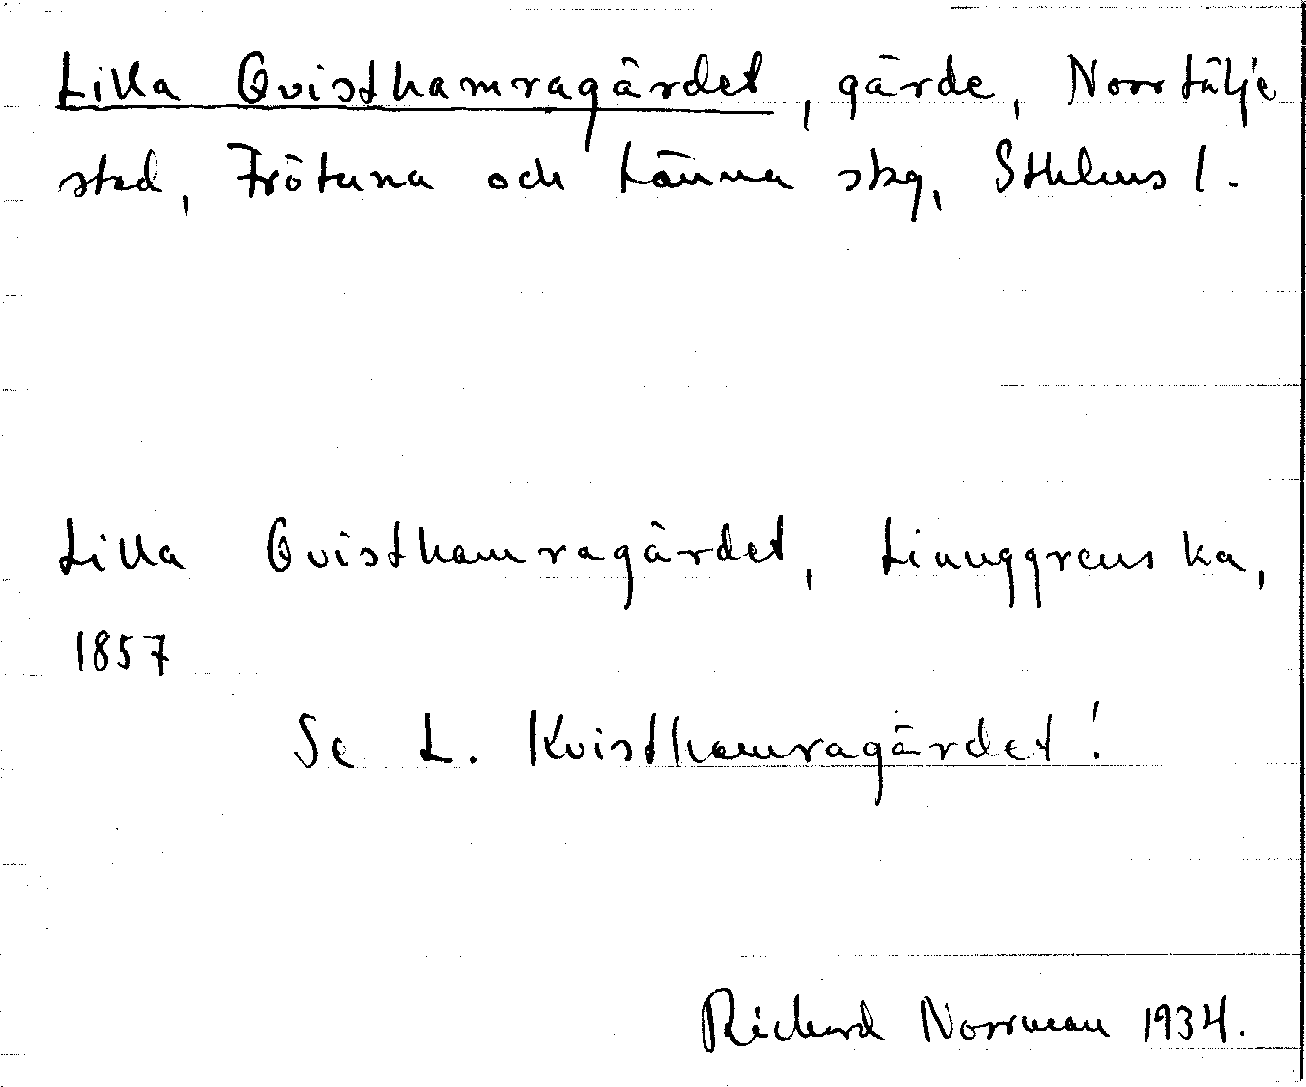 Lilla Qvisthamragärdet, gärde, Norrtälje
stad, Frötuna och Länna skg, Sthlms l.
Lilla Qvisthamragärdet, Liunggrenska,
1857
Se L. Kvisthamragärdet!
Richard Norrman 1934.